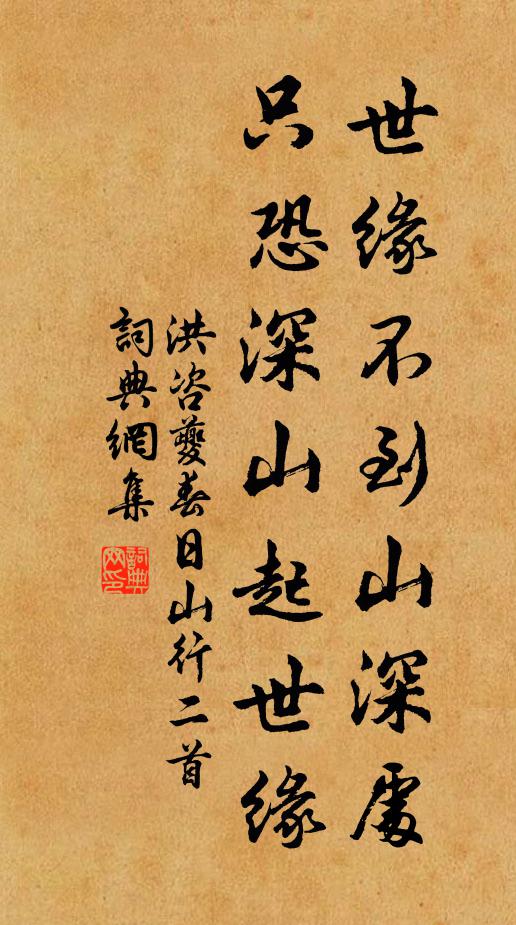 世緣不到山深處
只恐深山起世緣
洪咨夔春日山行二首
詞典網集
詞典
网印